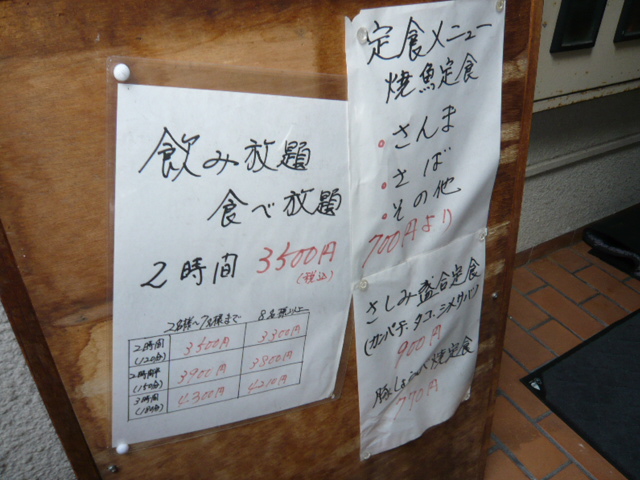 飲み放題
食べ放題
2時間 3500円
(税込)
2名様〜7名様まで 8名様以上
2時間(120分) 3500円 3300円
2時間半(150分) 3900円 3800円
3時間(180分) 4300円 4210円
定食メニュー
焼魚定食
・さんま
・さば
・その他
700円より
さしみ盛合定食
(カンパチ、タコ、シメサバ)
900円
豚しょうが焼定食
770円